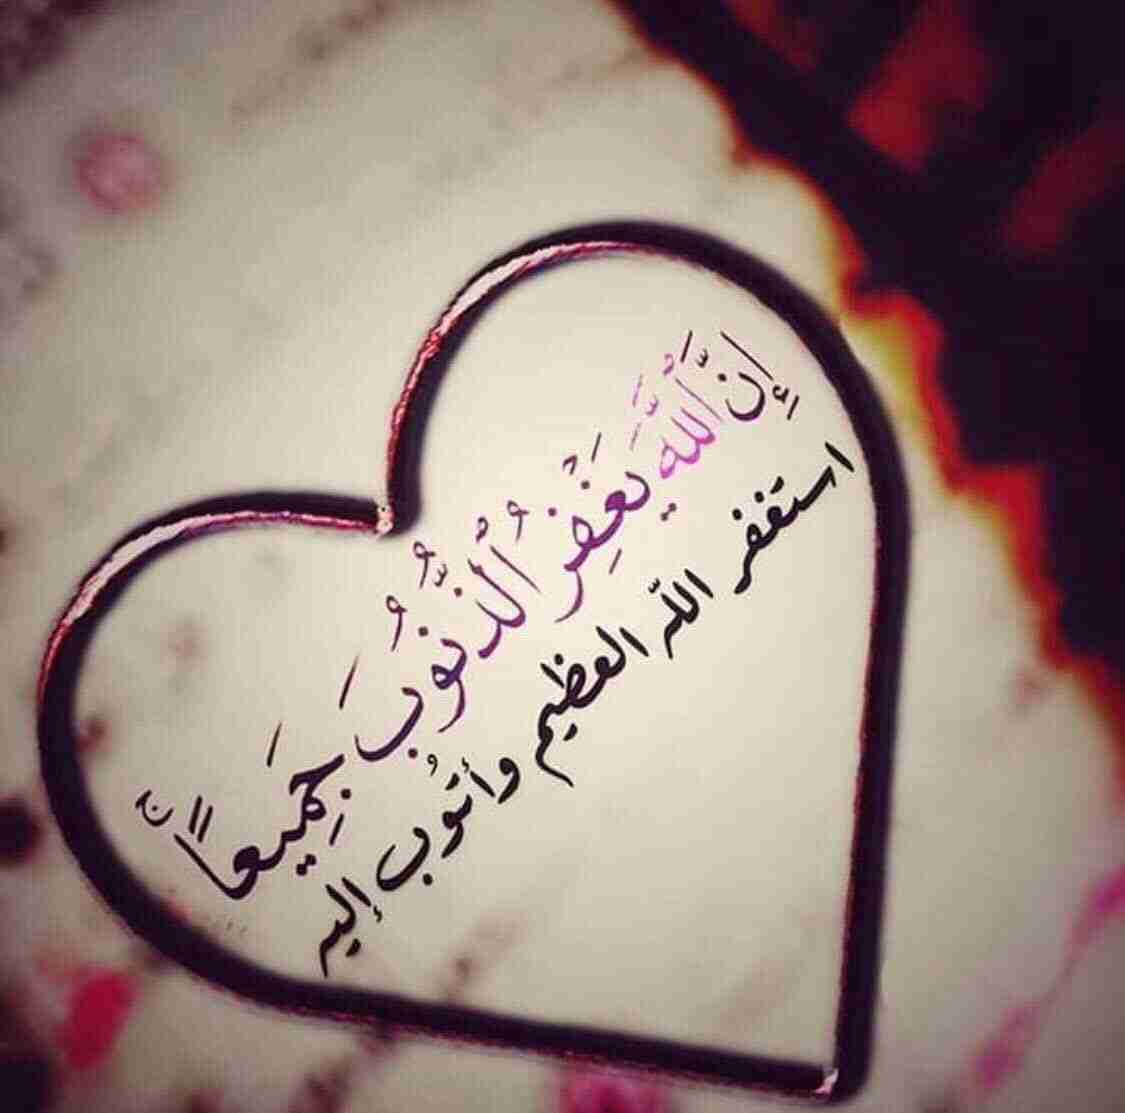 إِنَّ ٱللَّهَ يَغْفِرُ ٱلذُّنُوبَ جَمِيعاً
استغفر الله العظيم وأتوُب إليه